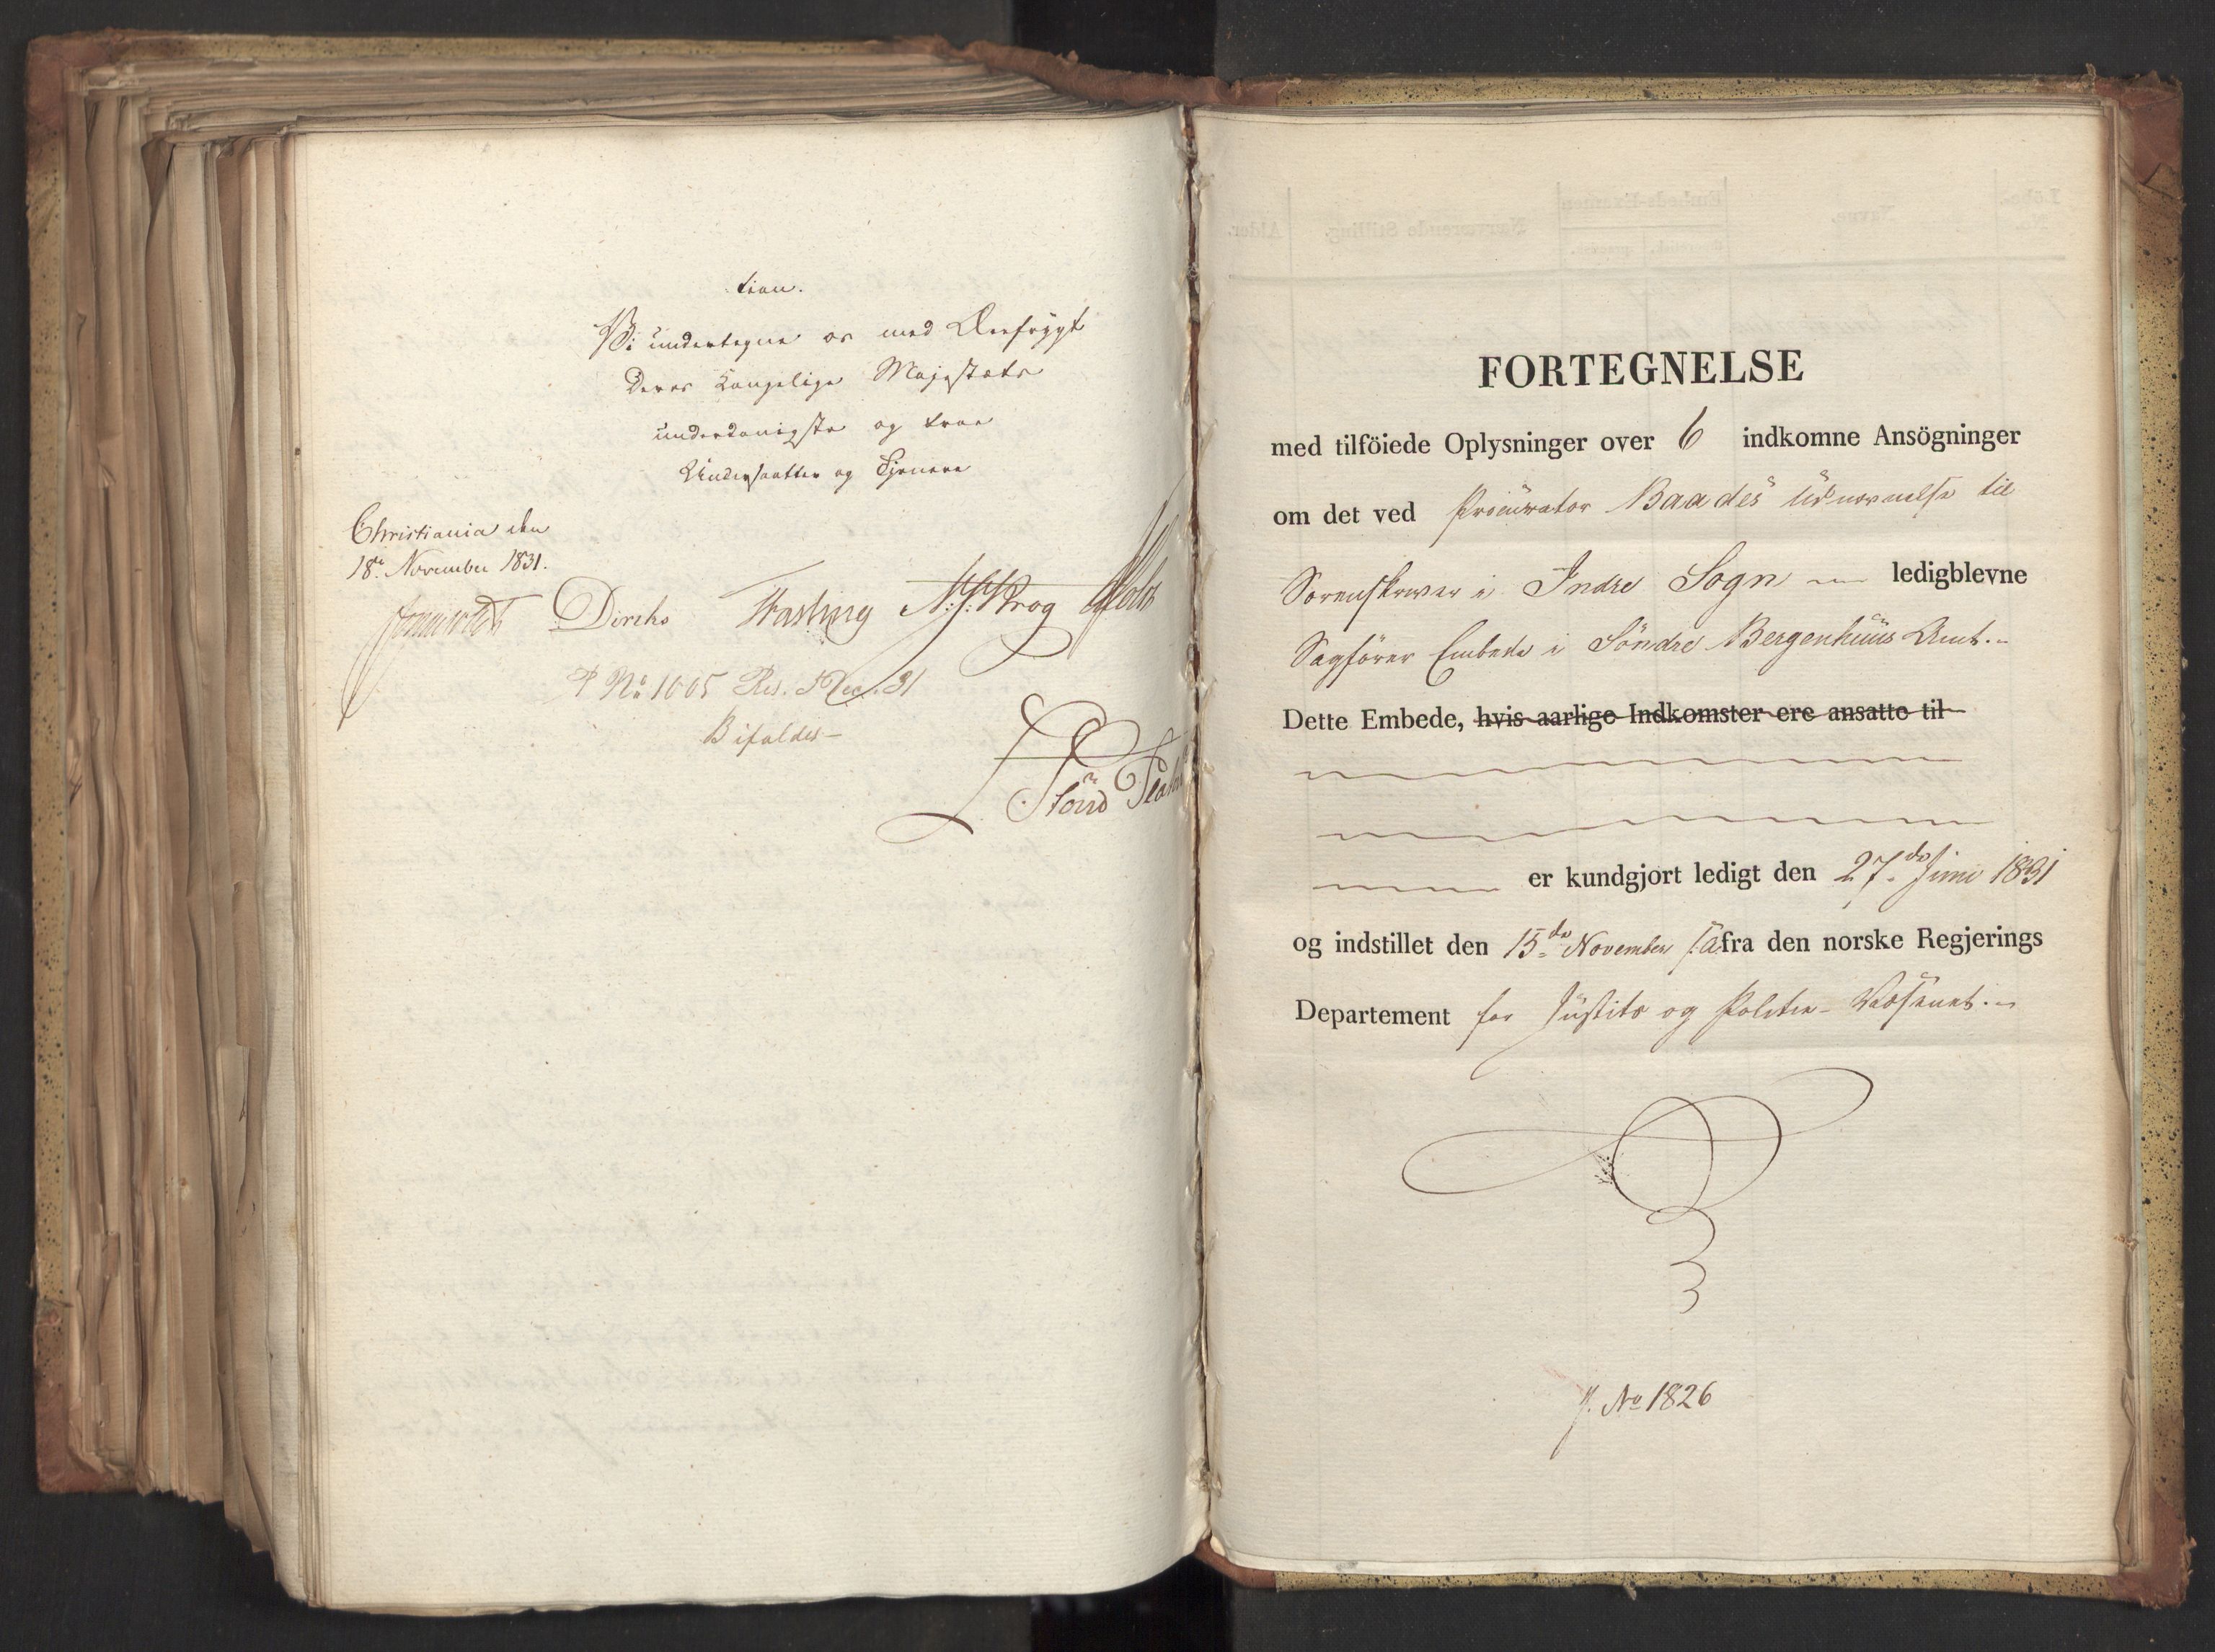 tion.
Vi undertegne os med Ærefrygt
Deres Kongelige Majestæts
underdanigste og troe
Undersaatter og Tjenere
Christiania den
18de November 1831.
Diriks Fasting Krog Holst
P No 1005 Res. 5 Dec. 31
Bifaldes
FORTEGNELSE
med tilföiede Oplysninger over 6 indkomne Ansögninger
om det ved Procurator Baades Udnævnelse til
Sorenskriver i Indre Sogn ledigblevne
Sagfører Embede i Söndre Bergenhuus Amt.
Dette Embede, hvis aarlige Indkomster ere ansatte til
er kundgjort ledigt den 27de Juni 1831
og indstillet den 15de November s. A. fra den norske Regjerings
Departement for Justits og Politie-Væsenet.
J. No 1826